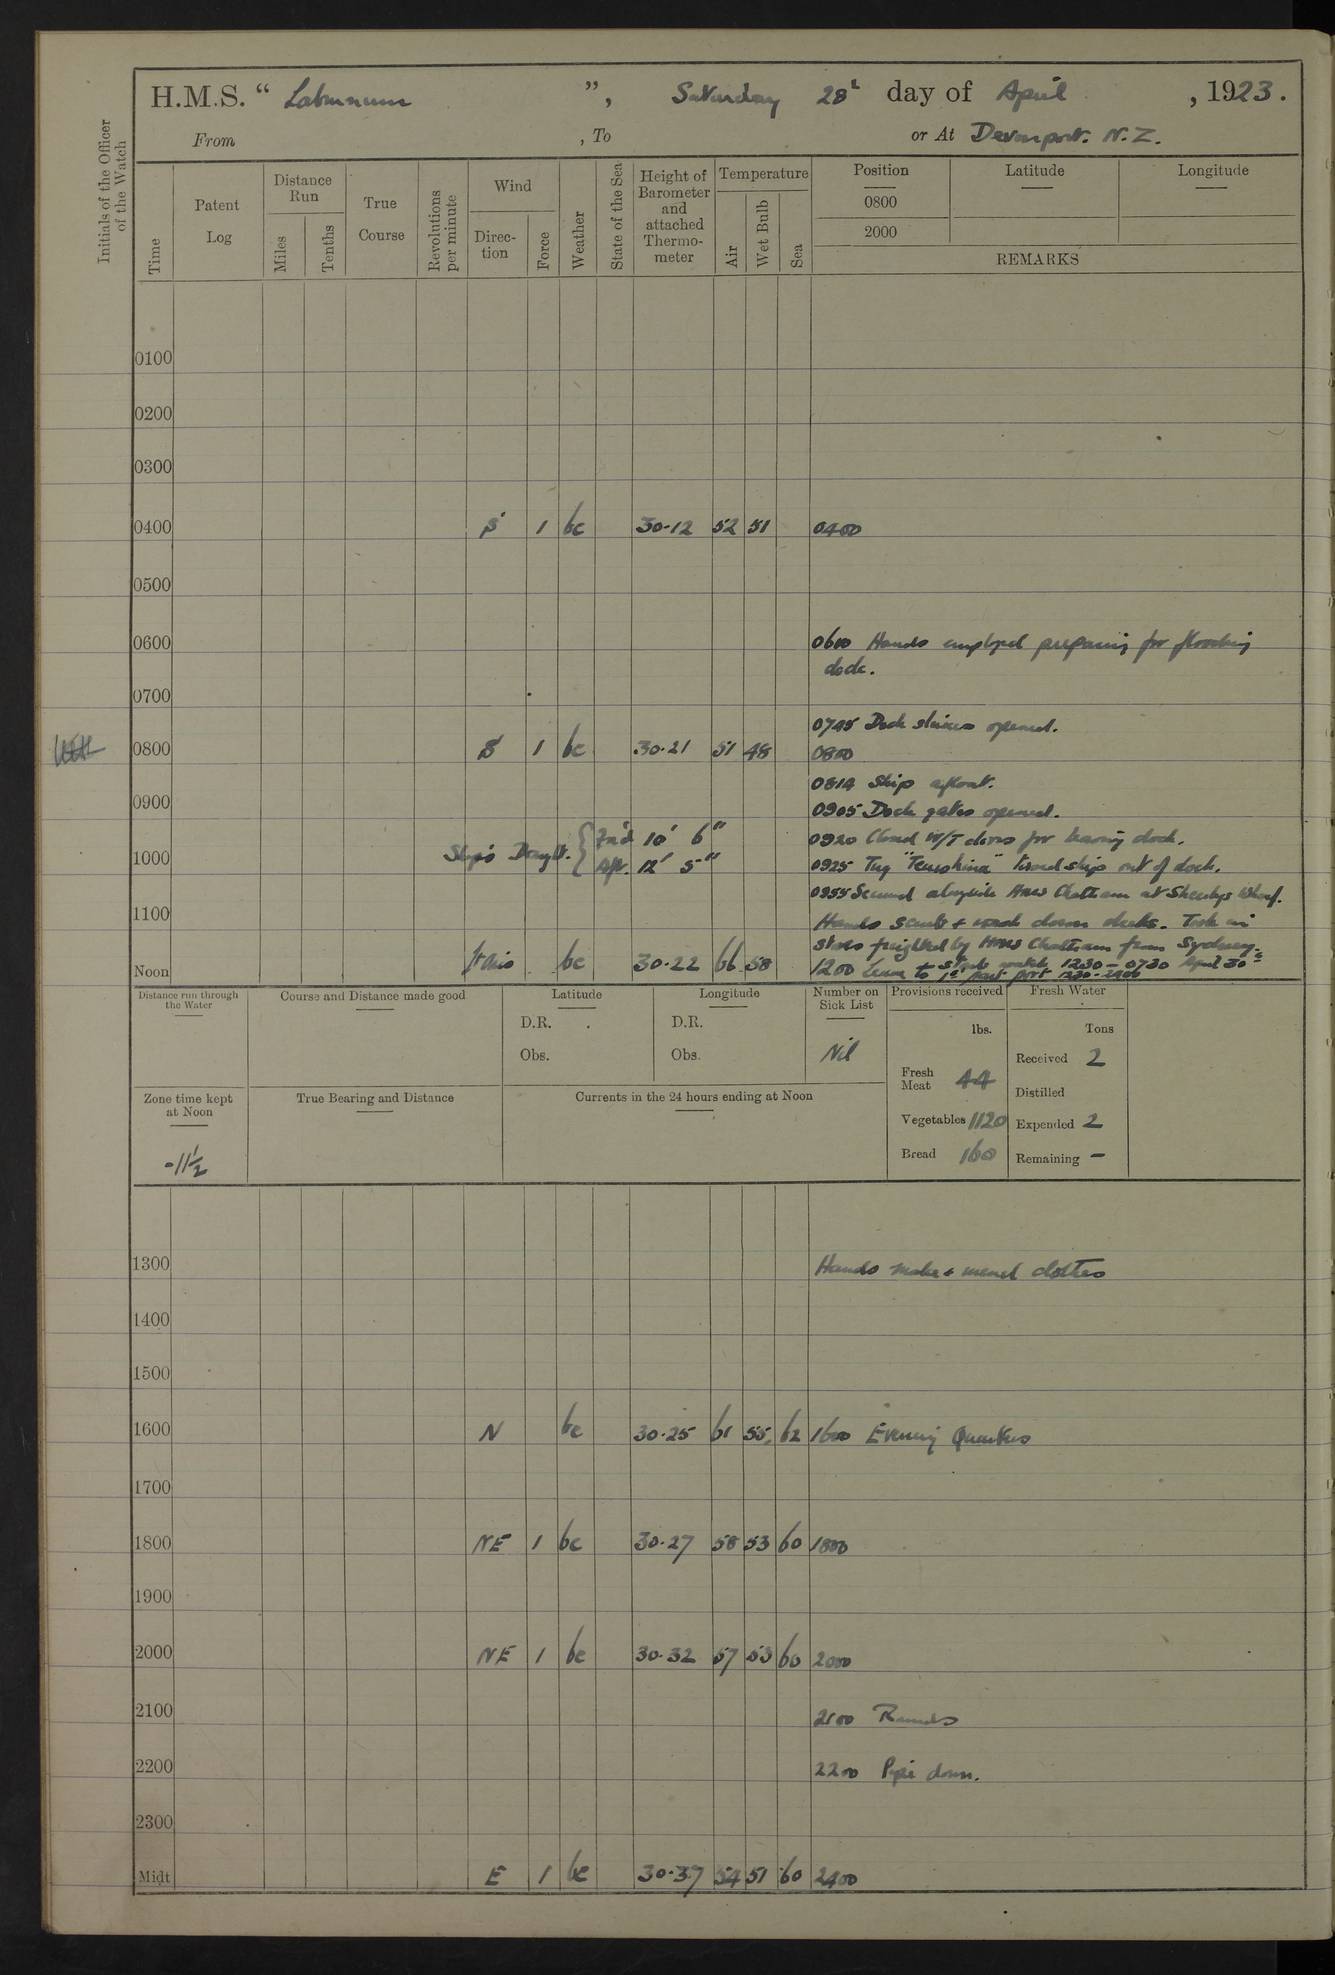 H.M.S. “ Laburnum ”, Saturday 28th day of April , 1923.
From , To or At Devonport. N.Z.
Initials of the Officer of the Watch
Time
Patent Log
Distance Run
Miles
Tenths
True Course
Revolutions per minute
Wind
Direc-tion
Force
Weather
State of the Sea
Height of Barometer and attached Thermo-meter
Temperature
Air
Wet Bulb
Sea
Position
0800
2000
Latitude
Longitude
REMARKS
0100
0200
0300
0400 S 1 bc 30.12 52 51 0400
0500
0600 0600 Hands employed preparing for flooding
dock.
0700
0745 Dock sluices opened.
0800 S 1 bc 30.21 51 48 0800
0814 Ship afloat.
0900
0905 Dock gates opened.
Ship's Draught. { For'd 10' 6"
Aft. 12' 5"
0920 Closed W/T doors for leaving dock.
1000 0925 Tug "Te Awhina" towed ship out of dock.
0955 Secured alongside HMS Chatham at Sheerlegs Wharf.
1100 Hands scrub + wash down decks. Took in
stores freighted by HMS Chatham from Sydney.
Noon bc 30.22 66 58 1200 Leave to Starbd watch 1230 – 0730 April 30th
1st part port 1230 - 2400
Distance run through the Water
Course and Distance made good
Latitude
D.R.
Obs.
Longitude
D.R.
Obs.
Number on Sick List
Nil
Provisions received
lbs.
Fresh Meat 44
Vegetables 1120
Bread 160
Fresh Water
Tons
Received 2
Distilled
Expended 2
Remaining –
Zone time kept at Noon
-11½
True Bearing and Distance
Currents in the 24 hours ending at Noon
1300 Hands make + mend clothes
1400
1500
1600 N bc 30.25 61 55 62 1600 Evening Quarters
1700
1800 NE 1 bc 30.27 58 53 60 1800
1900
2000 NE 1 bc 30.32 57 53 60 2000
2100 2100 Rounds
2200 2200 Pipe down.
2300
Midt E 1 bc 30.37 54 51 60 2400